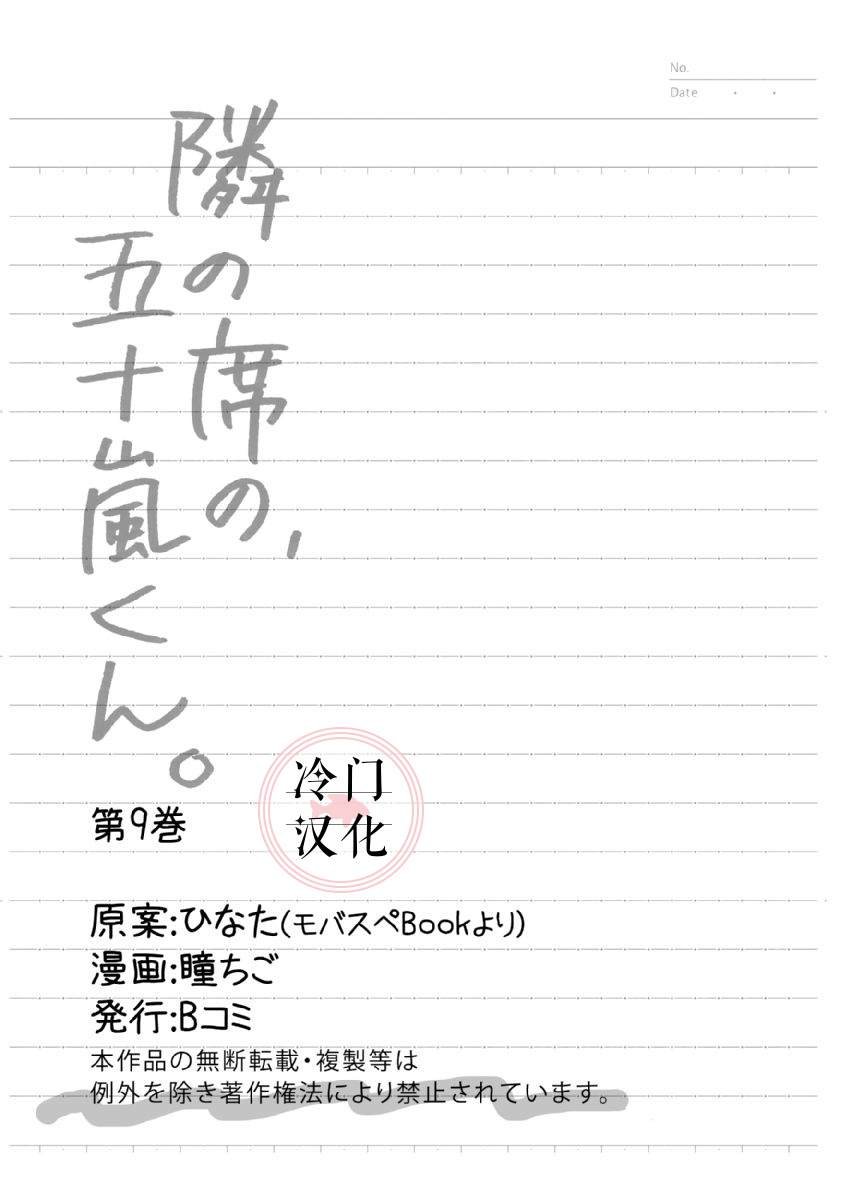 No.
Date ・ ・
隣の席の、
五十嵐くん。
第9巻
冷门
汉化
原案:ひなた(モバスペBookより)
漫画:瞳ちご
発行:Bコミ
本作品の無断転載・複製等は
例外を除き著作権法により禁止されています。